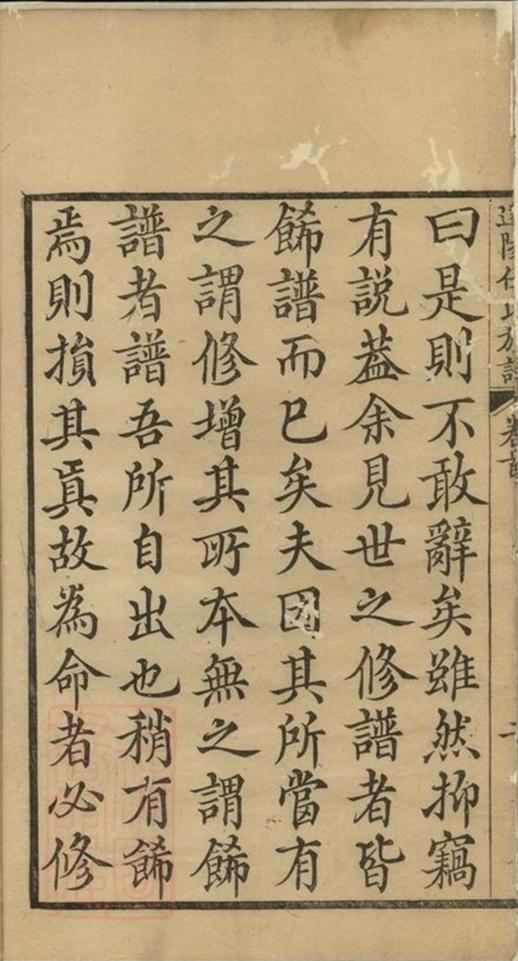 族譜
卷首
曰是則不敢辭矣雖然抑竊
有說葢余見世之修譜者皆
餙譜而已矣夫因其所當有
之謂修增其所本無之謂餙
譜者譜吾所自出也稍有餙
焉則損其真故為命者必修